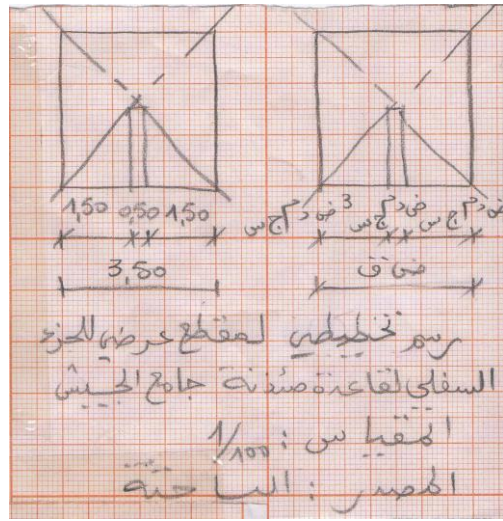 1,50 0,50 1,50
3,50
ض ق
رسم تخطيطي لمقطع عرضي للجزء
السفلي لقاعدة مئذنة جامع الجيش
المقياس : 1/100
المصدر : الباحثة